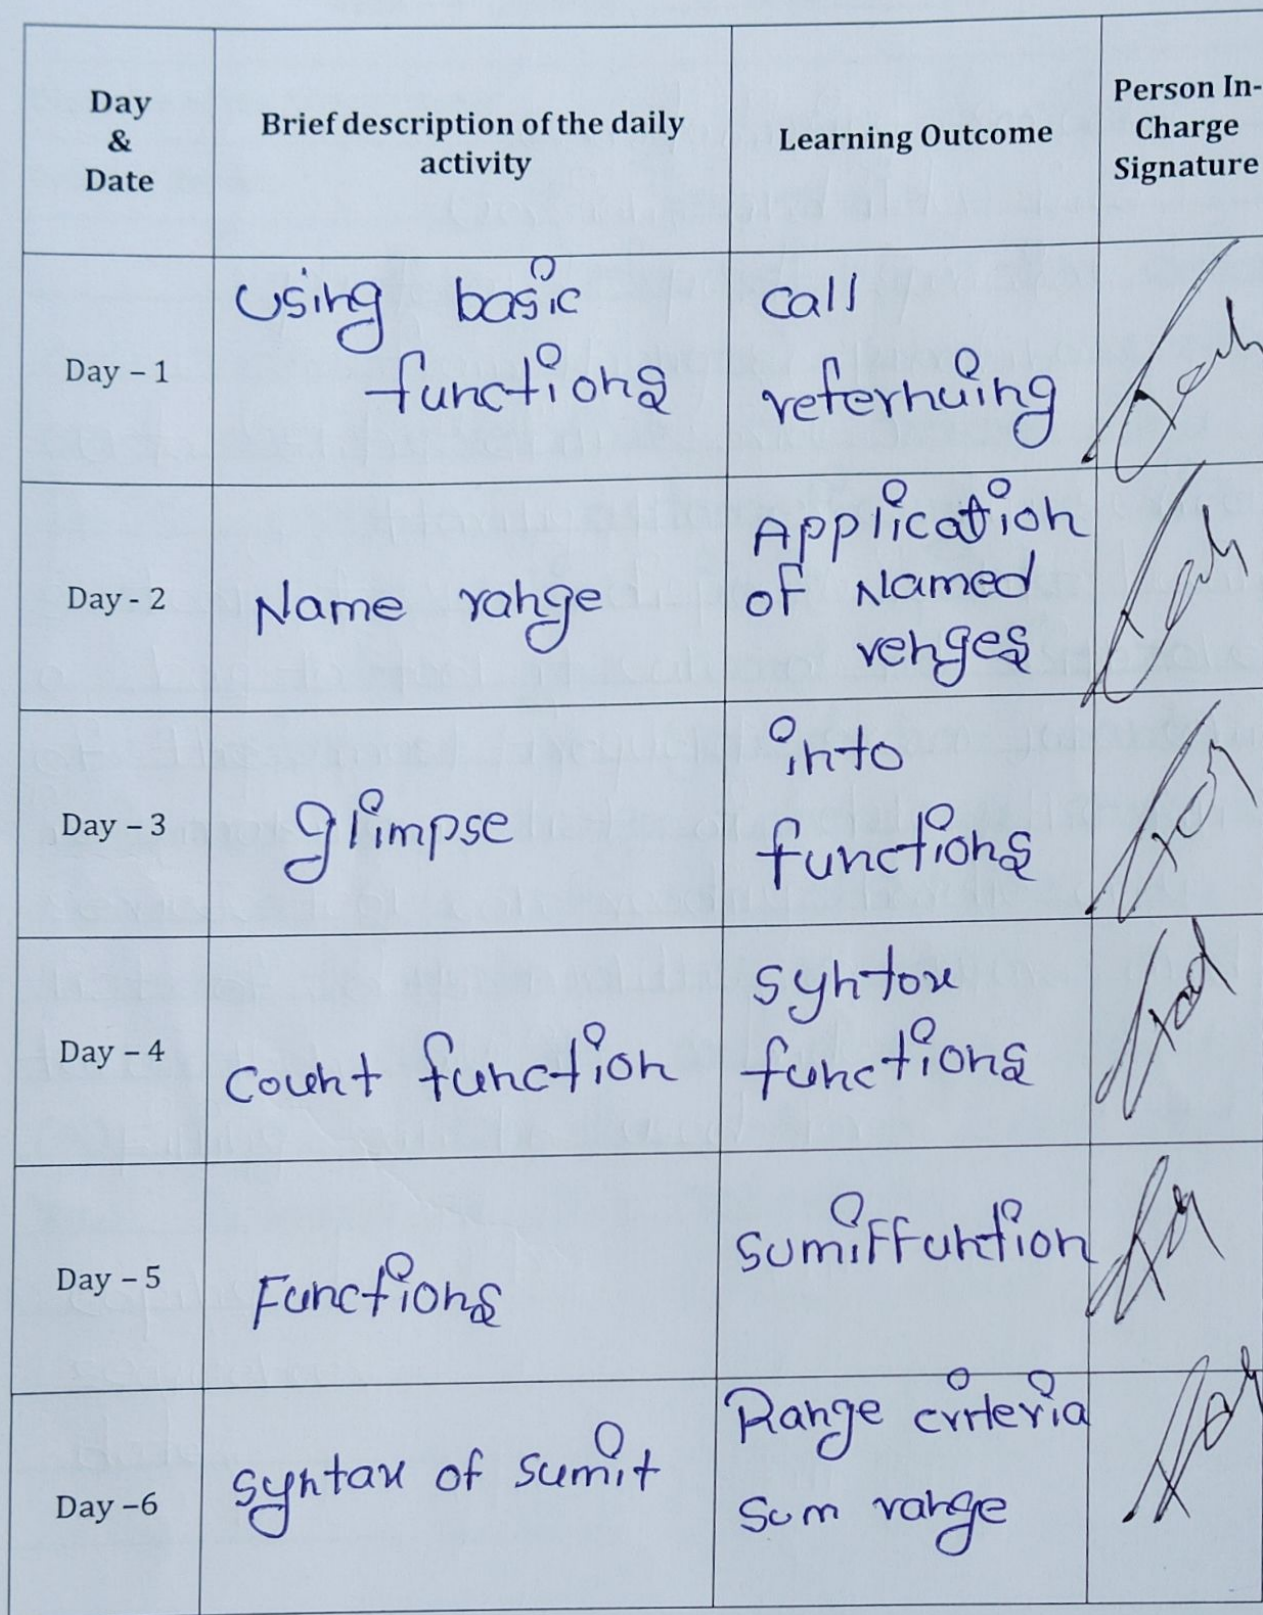 Day
&
Date
Brief description of the daily
activity
Learning Outcome
Person In-
Charge
Signature
Day – 1
Using basic
functions
call
referhuing
Day - 2
Name range
Application
of Named
renges
Day – 3
glimpse
into
functions
Day – 4
Count function
Syntax
functions
Day – 5
Functions
Sumiffuntion
Day –6
Syntax of Sumit
Range criteria
Sum range